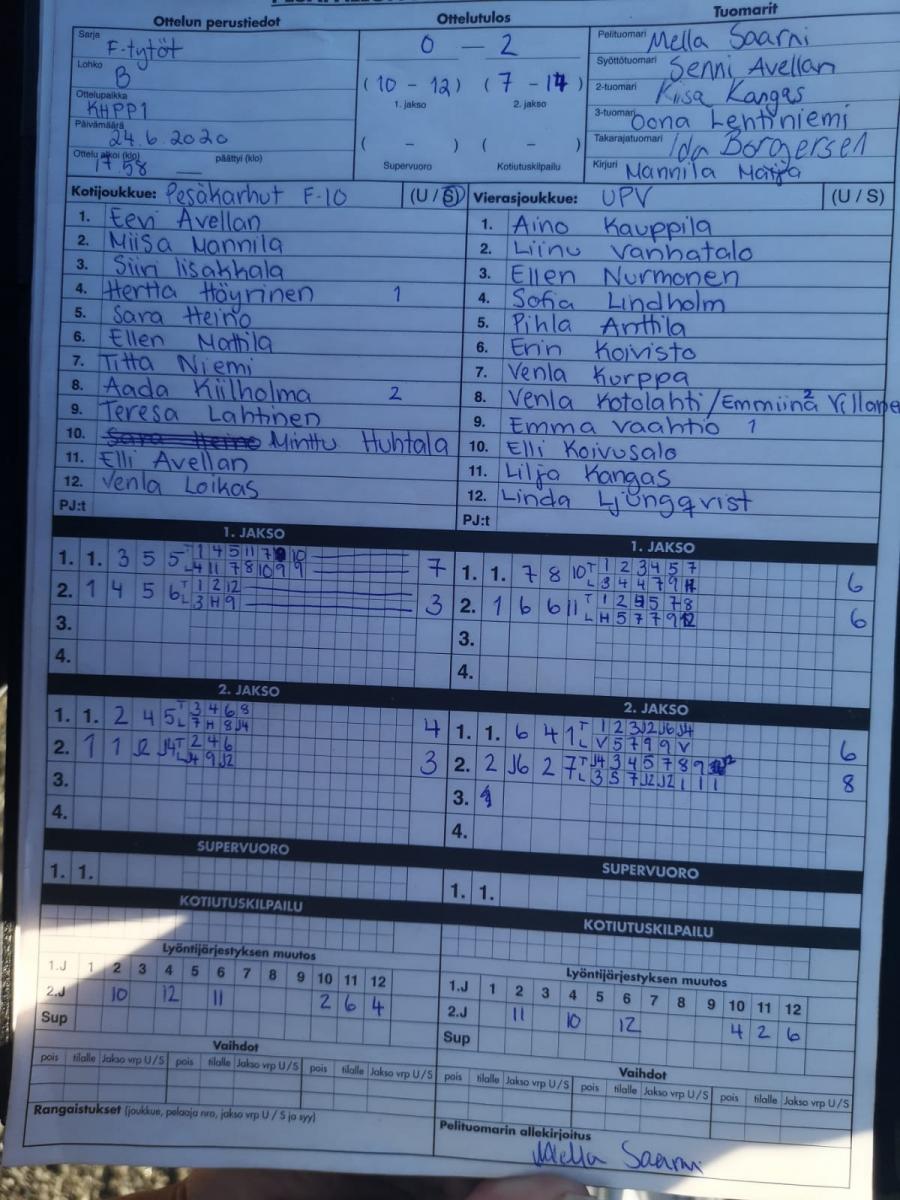 Ottelun perustiedot
Sarja F-tytöt
Lohko B
Ottelupaikka KHPP1
Päivämäärä 24.6.2020
Ottelu alkoi (klo) 17.58 päättyi (klo)
Ottelutulos
0 - 2
(10 - 12) (7 - 14)
1. jakso 2. jakso
( - ) ( - )
Supervuoro Kotiutuskilpailu
Tuomarit
Pelituomari Mella Saarni
Syöttötuomari Senni Avellan
2-tuomari Kiisa Kangas
3-tuomari Oona Lehtiniemi
Takarajatuomari Ida Borgersen
Kirjuri Mannila Marja
Kotijoukkue: Pesäkarhut F-10 (U / S)
1. Eevi Avellan
2. Miisa Mannila
3. Siiri Iisakkala
4. Hertta Höyrinen 1
5. Sara Heino
6. Ellen Mattila
7. Titta Niemi
8. Aada Kiilholma 2
9. Teresa Lahtinen
10. Sara Heino Minttu Huhtala
11. Elli Avellan
12. Venla Loikas
PJ:t
Vierasjoukkue: UPV (U / S)
1. Aino Kauppila
2. Liinu Vanhatalo
3. Ellen Nurmonen
4. Sofia Lindholm
5. Pihla Anttila
6. Erin Koivisto
7. Venla Korppa
8. Venla Kotolahti/Emmiina 2
9. Emma Vaahtio 1
10. Elli Koivusalo
11. Lilja Kangas
12. Linda Ljungqvist
PJ:t
1. JAKSO
1. 1. 3 5 5 T 1 4 5 11 7 10 7
L 4 11 7 8 10 9 9
2. 1 4 5 6 T 1 2 12 3
L 3 H 9
3.
4.
1. JAKSO
1. 1. 7 8 10 T 1 2 3 4 5 7 6
L 3 4 4 7 9
2. 1 6 6 11 T 1 2 5 7 8 6
L H 5 7 7 9 12
3.
4.
2. JAKSO
1. 1. 2 4 5 T 3 4 6 8 4
L 7 H 8 J4
2. 1 1 J2 J4 T 2 4 6 3
L J4 9 J2
3.
4.
2. JAKSO
1. 1. 6 4 1 T 1 2 3 J2 J6 J4 6
L V 5 7 9 9 V
2. 2 J6 2 7 T J4 3 4 5 7 8 9 8
L 3 5 7 J2 J2 1 1 1
3.
4.
SUPERVUORO
1. 1.
SUPERVUORO
1. 1.
KOTIUTUSKILPAILU
KOTIUTUSKILPAILU
Lyöntijärjestyksen muutos
1.J 1 2 3 4 5 6 7 8 9 10 11 12
2.J 10 12 11 2 6 4
Sup
Lyöntijärjestyksen muutos
1.J 1 2 3 4 5 6 7 8 9 10 11 12
2.J 11 10 12 4 2 6
Sup
Vaihdot
pois tilalle Jakso vrp U/S pois tilalle Jakso vrp U/S pois tilalle Jakso vrp U/S
Vaihdot
pois tilalle Jakso vrp U/S pois tilalle Jakso vrp U/S pois tilalle Jakso vrp U/S
Rangaistukset (joukkue, pelaaja nro, jakso vrp U / S ja syy)
Pelituomarin allekirjoitus
Mella Saarni